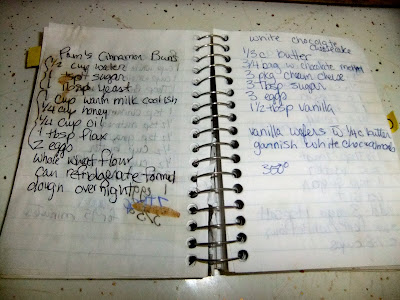 Pam's Cinnamon Buns
1/2 cup water
1 tsp sugar
1 tbsp yeast
1 cup warm milk coolish
1/4 cup honey
1/4 cup oil
1 tbsp flax
2 eggs
whole wheat flour
can refridgerate formed
dough overnight
white chocolate
cheesecake
1/3 c. butter
3/4 bag w chocolate melted
3 pkg cream cheese
3 tbsp sugar
3 eggs
1 1/2 tbsp vanilla
vanilla wafers w 1/4c butter
garnish white choc almonds
350°